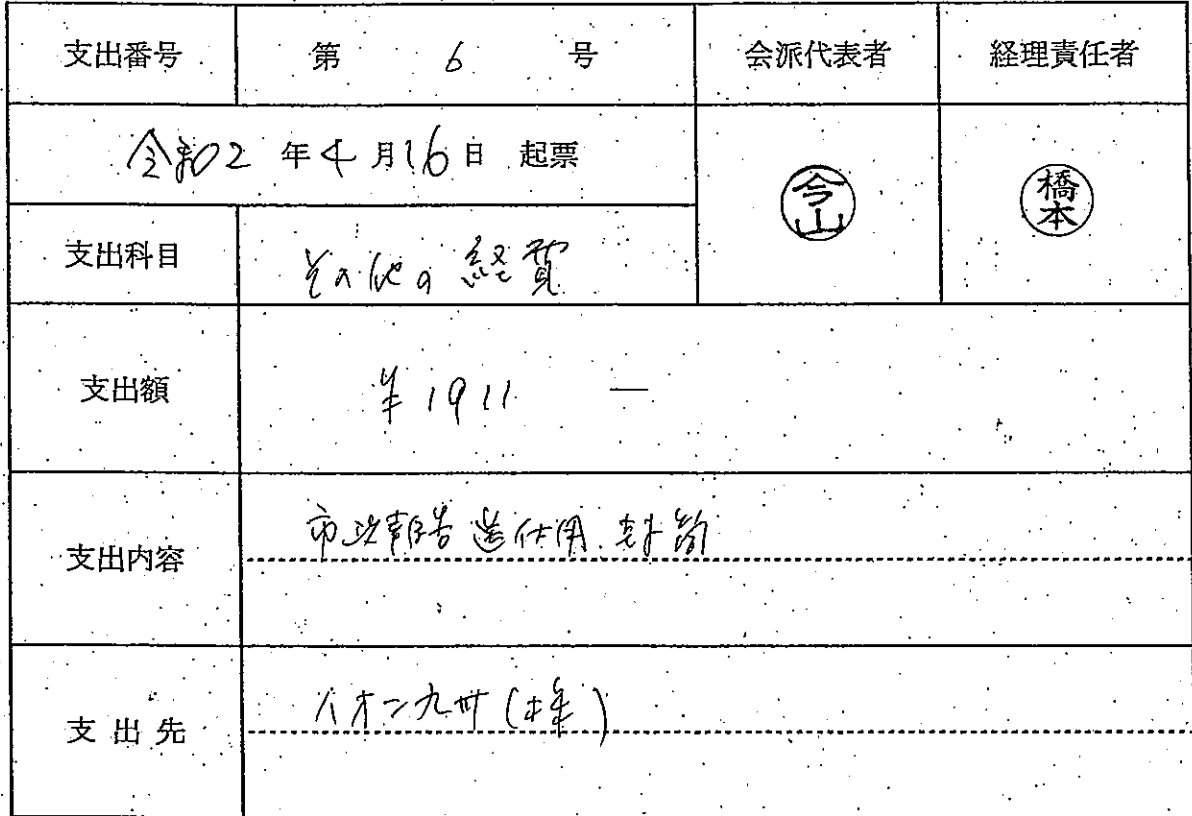 支出番号 第 6 号 会派代表者 経理責任者
令和02 年 4 月 16 日 起票
今山 橋本
支出科目 その他の経費
支出額 ¥1911 —
支出内容 市政報告送付用封筒
支出先 イオン九州(株)